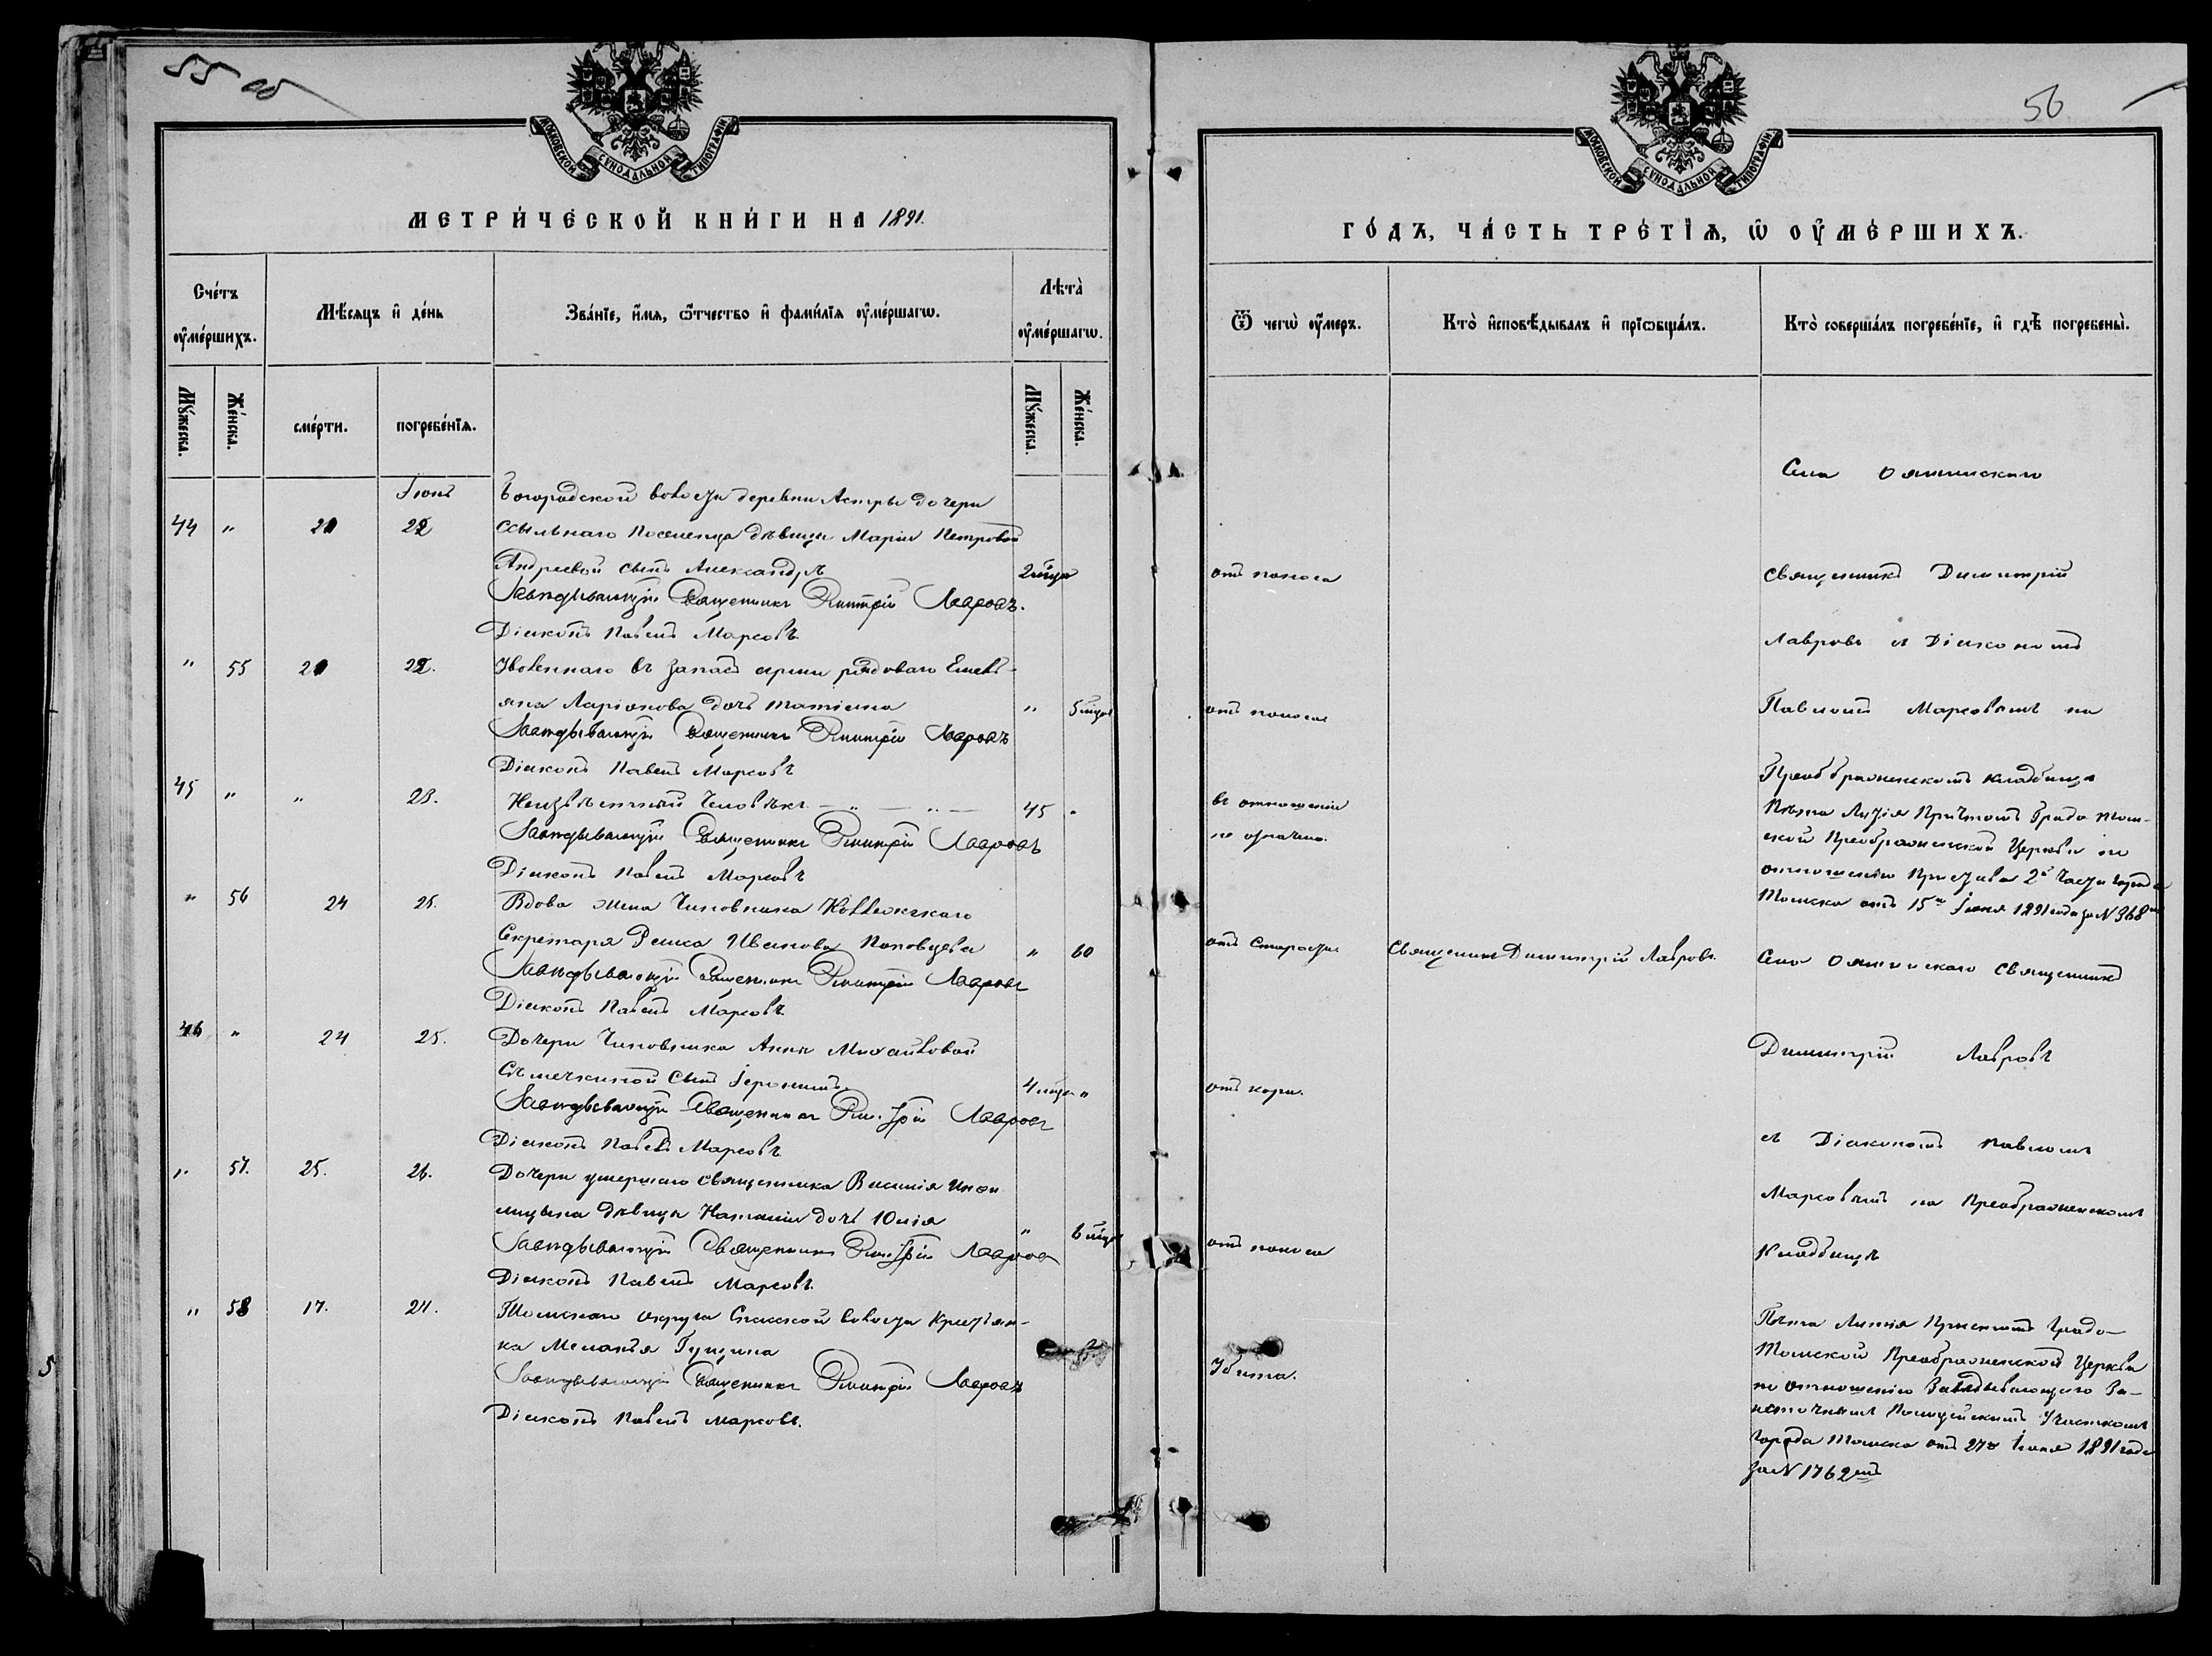 55 об
МОСКОВСКОЙ СУНОДАЛЬНОЙ ТИПОГРАФІИ
МЕТРИ́ЧЕСКОЙ КНИ́ГИ НА 1891.
Сче́тъ ᲂу҆ме́ршихъ.
Мѣ́сяцъ и҆ де́нь
Зва́нїе, и҆́мѧ, ѻ҆́тчество и҆ фами́лїѧ ᲂу҆ме́ршагѡ.
Лѣта̀ ᲂу҆ме́ршагѡ.
Мꙋ́жеска.
Же́нска.
сме́рти.
погребе́нїѧ.
Мꙋ́жеска.
Же́нска.
Іюнь
Богородской волости деревни Астры дочери
44 " 21 22 ссыльнаго поселенца дѣвицы Маріи Петровой
Андреевой сынъ Александръ 2 мѣсца
Завѣдывающій Священникъ Димитрій Лавровъ.
Діаконъ Павелъ Марсовъ.
" 55 21 22. Уволеннаго въ запасъ арміи рядоваго Емель-
яна Ларіонова дочь Татіана " 5 мѣсц
Завѣдывающій Священникъ Димитрій Лавровъ
Діаконъ Павелъ Марсовъ
45 " " 23. Неизвѣстный человѣкъ 45 "
Завѣдывающій Священникъ Димитрій Лавровъ
Діаконъ Павелъ Марсовъ
" 56 24 25. Вдова жена Чиновника Коллежскаго
Секретаря Раиса Иванова Поповцева " 60
Завѣдывающій Священникъ Димитрій Лавровъ
Діаконъ Павелъ Марсовъ
46 " 24 25. Дочери Чиновника Анны Михайловой
Сѣмечкиной сынъ Іеронимъ 4 мѣсц "
Завѣдывающій Священникъ Димитрій Лавровъ
Діаконъ Павелъ Марсовъ
" 57. 25. 26. Дочери умершаго священника Василія
дѣвицы Наталіи дочь Юлія " 6 мѣсц
Завѣдывающій Священникъ Димитрій Лавровъ
Діаконъ Павелъ Марсовъ.
" 58 17. 27. Томскаго округа Спасской волости Крестьян-
ка Меланья Гущина
Завѣдывающій Священникъ Димитрій Лавровъ
Діаконъ Павелъ Марсовъ.
5
56
МОСКОВСКОЙ СУНОДАЛЬНОЙ ТИПОГРАФІИ
ГО́ДЪ, ЧА́СТЬ ТРЕ́ТЇѦ, Ѡ҆ ОУ҆МЕ́РШИХЪ.
Ѿ чегѡ̀ ᲂу҆́меръ.
Кто̀ и҆сповѣ́дывалъ и҆ прїѡбща́лъ.
Кто̀ соверша́лъ погребе́нїе, и҆ гдѣ̀ погребены̀.
Сіи
отъ поноса Священникъ Димитрій
Лавровъ съ Діакономъ
отъ поноса Павломъ Марсовымъ на
Преображенскомъ кладбищѣ
въ отношеніи Пѣта Литія Причтомъ Градо Том-
не означено. ской Преображенской Церкви по
отношенію Пристава 2й части города
Томска отъ 15го Іюня 1891 года за № 368мъ
отъ старости Священникъ Димитрій Лавровъ. Священникъ
Димитрій Лавровъ
отъ кори.
съ Діакономъ Павломъ
Марсовымъ на Преображенскомъ
отъ поноса Кладбищѣ
Пѣта Литія Причтомъ Градо-
Томской Преображенской Церкви
Убита. по отношенію Завѣдывающаго За-
источнымъ Полицейскимъ Участкомъ
города Томска отъ 27го Іюня 1891 года
за № 1762мъ